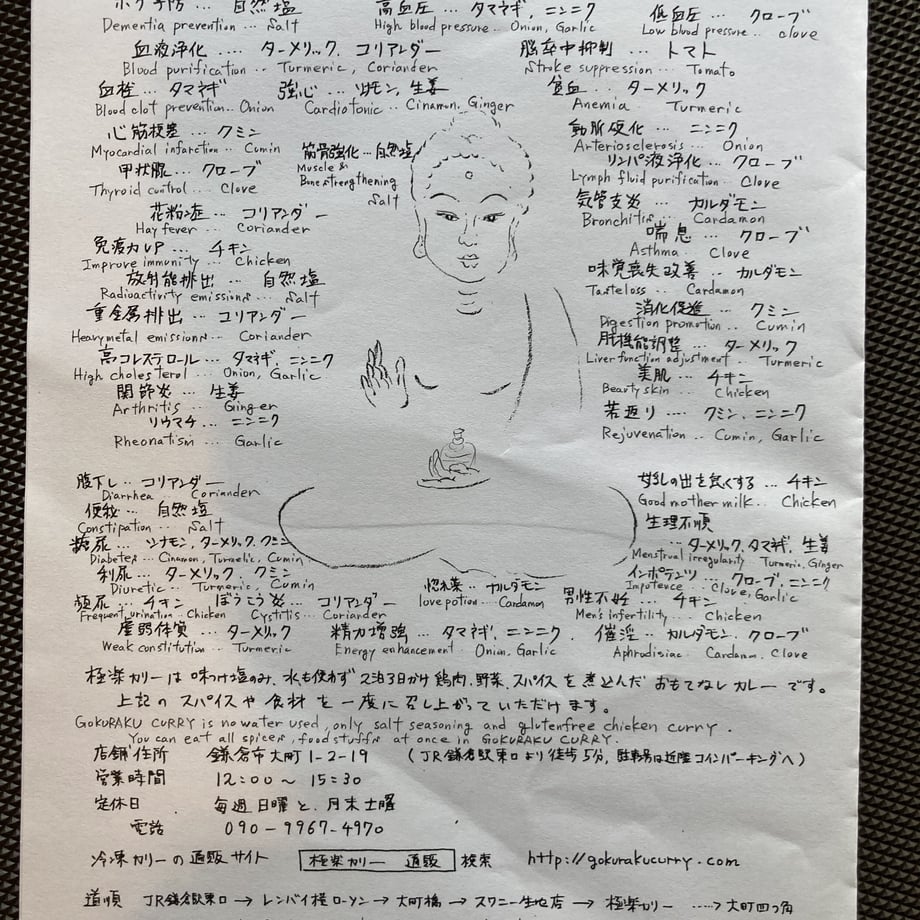 ボケ予防 ... 自然塩
Dementia prevention ... Salt
高血圧 ... タマネギ、ニンニク
High blood pressure .. Onion, Garlic
低血圧 ... クローブ
Low blood pressure .. clove
血液浄化 .... ターメリック、コリアンダー
Blood purification .. Turmeric, Coriander
脳卒中抑制 ... トマト
Stroke suppression ... Tomato
血栓 ... タマネギ
Blood clot prevention.. Onion
強心 ... シナモン、生姜
Cardiotonic .. Cinamon, Ginger
貧血 ... ターメリック
Anemia Turmeric
心筋梗塞 ... クミン
Myocardial infarction .. Cumin
筋骨強化 ... 自然塩
Muscle &
Bone strengthening
Salt
動脈硬化 ... ニンニク
Arteriosclerosis .. Onion
甲状腺 ... クローブ
Thyroid control .. Clove
リンパ液浄化 ... クローブ
Lymph fluid purification .. Clove
花粉症 ... コリアンダー
Hay fever .. Coriander
気管支炎 ... カルダモン
Bronchitis ... Cardamon
喘息 ... クローブ
Asthma .. Clove
免疫力UP ... チキン
Improve immunity ... Chicken
味覚喪失改善 .. カルダモン
Tasteloss .. Cardamon
放射能排出 .. 自然塩
Radioactivity emissions .. Salt
消化促進 ... クミン
Digestion promotion .. Cumin
重金属排出 ... コリアンダー
Heavy metal emissions .. Coriander
肝機能調整 ... ターメリック
Liver function adjustment .. Turmeric
高コレステロール ... タマネギ、ニンニク
High cholesterol ... Onion, Garlic
美肌 ... チキン
Beauty skin .. Chicken
関節炎 ... 生姜
Arthritis .. Ginger
若返り .... クミン、ニンニク
Rejuvenation .. Cumin, Garlic
リウマチ ... ニンニク
Rheonatism ... Garlic
腹下し .. コリアンダー
Diarrhea .. Coriander
母乳の出を良くする ... チキン
Good mother milk .. Chicken
便秘 ... 自然塩
Constipation .. Salt
生理不順
... ターメリック、タマネギ、生姜
Menstrual irregularity Turmeric, Ginger
糖尿 ... シナモン、ターメリック、クミン
Diabetes ... Cinamon, Turmelic, Cumin
利尿 ... ターメリック、クミン
Diuretic .. Turmeric, Cumin
インポテンツ ... クローブ、ニンニク
Impotence Clove, Garlic
惚れ薬 .. カルダモン
love potion .. Cardamon
頻尿 ... チキン
Frequent urination .. Chicken
ぼうこう炎 ... コリアンダー
Cystitis .. Coriander
男性不妊 ... チキン
Men's infertility .. Chicken
虚弱体質 ... ターメリック
Weak constitution .. Turmeric
精力増強 ... タマネギ、ニンニク
Energy enhancement .. Onion, Garlic
催淫 .. カルダモン、クローブ
Aphrodisiac .. Cardamon, Clove
極楽カリーは味つけ塩のみ、水も使わず2泊3日かけ鶏肉、野菜、スパイスを煮込んだおもてなしカレーです。
上記のスパイスや食材を一度に召し上がっていただけます。
GOKURAKU CURRY is no water used, only salt seasoning and glutenfree chicken curry.
You can eat all spices, food stuffs at once in GOKURAKU CURRY.
店舗住所 鎌倉市大町1-2-19 (JR鎌倉駅東口より徒歩5分、駐車場は近隣コインパーキングへ)
営業時間 12:00〜15:30
定休日 毎週日曜と、月末土曜
電話 090-9967-4970
冷凍カリーの通販サイト 極楽カリー 通販 検索 http://gokurakucurry.com
道順 JR鎌倉駅東口 → レンバイ横ローソン → 大町橋 → スワニー生地店 → 極楽カリー ....> 大町四つ角